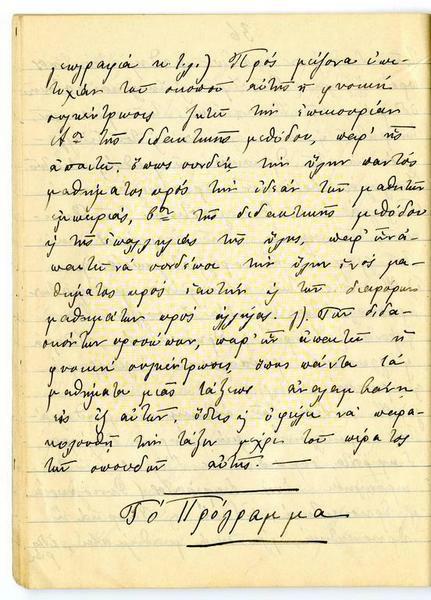 γεωγραφία κ.τ.λ.) Πρὸς μείζονα ἐπι-
τυχίαν τοῦ σκοποῦ αὐτῆς ἡ φυσικὴ
συγκέντρωσις ζητεῖ τὴν ἐπικουρίαν
Αον τῆς διδακτικῆς μεθόδου, παρ' ἧς
ἀπαιτεῖ, ὅπως συνδέῃ τὴν ὕλην παντὸς
μαθήματος πρὸς τὴν ἰδίαν τῶν μαθητῶν
ἐμπειρίαν, βον τῆς διδακτικῆς μεθόδου
ἢ τῆς ἐπαλληλίας τῆς ὕλης, παρ' ἧς ἀ-
παιτεῖ νὰ συνδέῃ τὴν ὕλην ἑνὸς μα-
θήματος πρὸς ἑαυτὴν ἢ τῶν διαφόρων
μαθημάτων πρὸς ἄλληλα. γ). Τῶν διδα-
σκόντων προσώπων, παρ' ὧν ἀπαιτεῖ ἡ
φυσικὴ συγκέντρωσις, ὅπως πάντα τὰ
μαθήματα μιᾶς τάξεως ἀναλαμβάνῃ
εἷς ἐξ αὐτῶν, ὅστις ὀφείλει νὰ παρα-
κολουθῇ τὴν τάξιν μέχρι τοῦ πέρατος
τῶν σπουδῶν αὐτῆς. —
Τὸ Πρόγραμμα